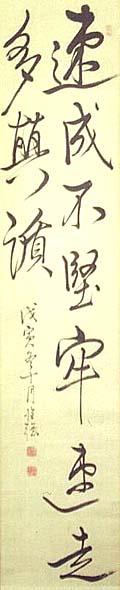 速成不堅牢速走
多興躓
戊寅冬十月